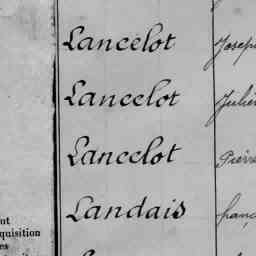 Lancelot Joseph
Lancelot Julien
Lancelot Pierre
Landais franç
nt
quisition
es